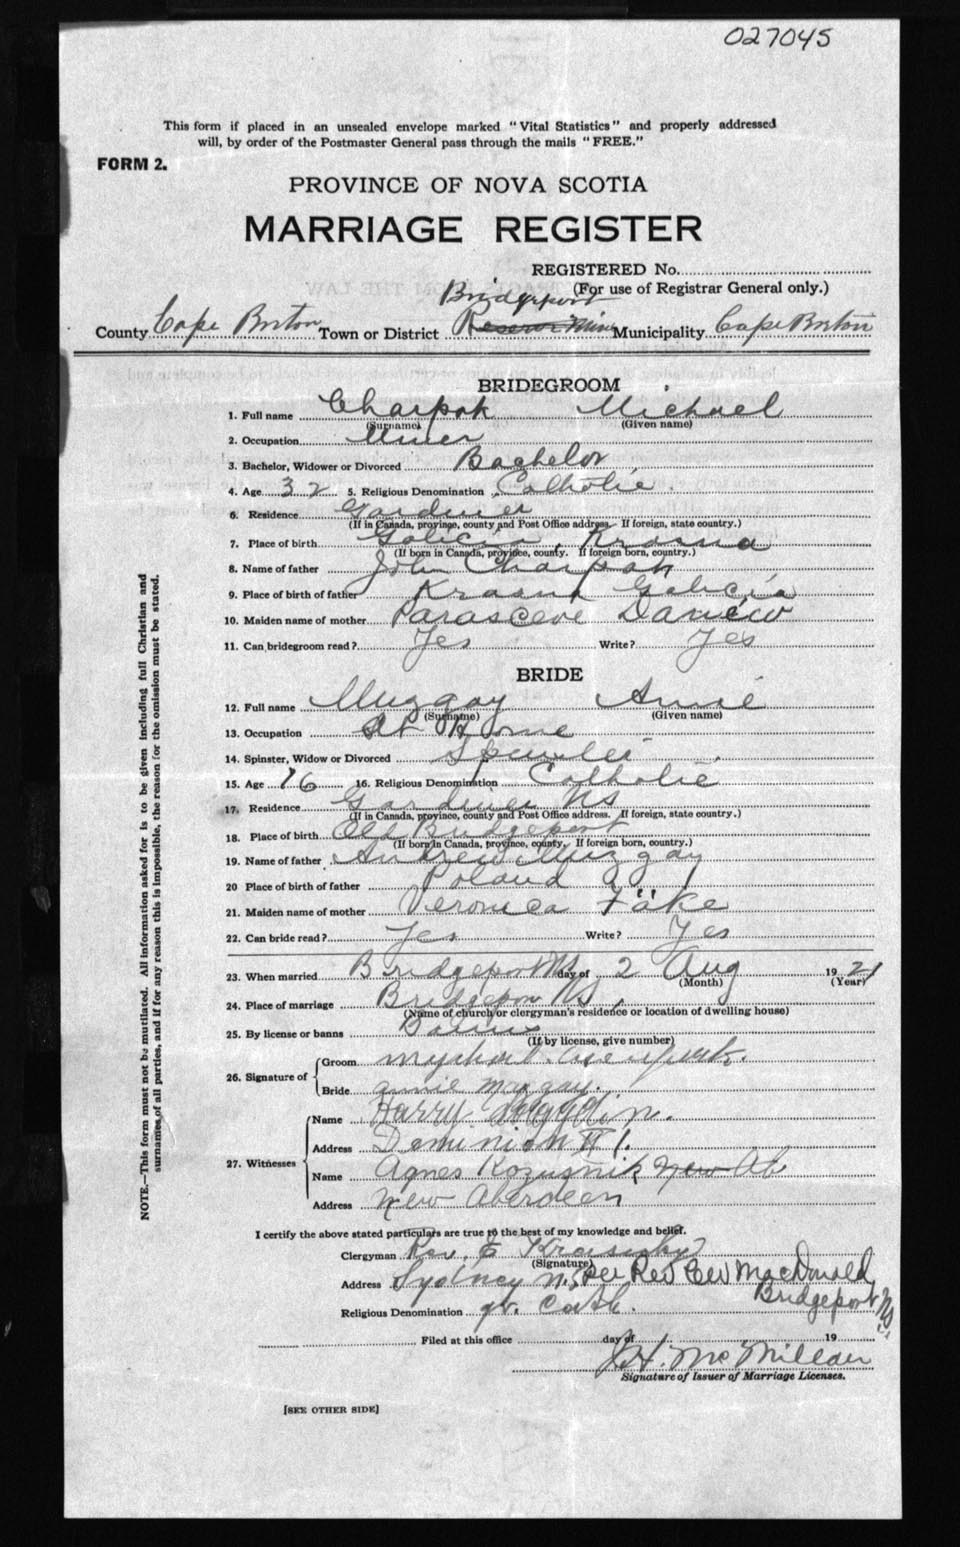 027045
This form if placed in an unsealed envelope marked "Vital Statistics" and properly addressed
will, by order of the Postmaster General pass through the mails "FREE."
FORM 2.
PROVINCE OF NOVA SCOTIA
MARRIAGE REGISTER
REGISTERED No.
(For use of Registrar General only.)
Bridgeport
County Cape Breton Town or District Reserve Mines Municipality Cape Breton
BRIDEGROOM
1. Full name Charpak Michael
(Surname) (Given name)
2. Occupation Miner
3. Bachelor, Widower or Divorced Bachelor
4. Age 32 5. Religious Denomination Catholic
6. Residence Gardiner
(If in Canada, province, county and Post Office address. If foreign, state country.)
7. Place of birth Galicia Krasna
(If born in Canada, province, county. If foreign born, country.)
8. Name of father John Charpak
9. Place of birth of father Krasna Galicia
10. Maiden name of mother Parasceve Daniew
11. Can bridegroom read? Yes Write? Yes
BRIDE
12. Full name Muzgay Annie
(Surname) (Given name)
13. Occupation At Home
14. Spinster, Widow or Divorced Spinster
15. Age 16 16. Religious Denomination Catholic
17. Residence Gardiner NS
(If in Canada, province, county and Post Office address. If foreign, state country.)
18. Place of birth Old Bridgeport
(If born in Canada, province, county. If foreign born, country.)
19. Name of father Andrew Muzgay
20 Place of birth of father Poland
21. Maiden name of mother Veronica Fäke
22. Can bride read? Yes Write? Yes
23. When married Bridgeport NS day of 2 Aug 1921
(Month) (Year)
24. Place of marriage Bridgeport NS
(Name of church or clergyman's residence or location of dwelling house)
25. By license or banns Banns
(If by license, give number)
26. Signature of Groom
Bride annie mazgay.
27. Witnesses Name Harry
Address Dominion # 1.
Name Agnes Kozusnik New Ab
Address New Aberdeen
I certify the above stated particulars are true to the best of my knowledge and belief.
Clergyman Rev. E
(Signature)
Address Sydney N.S. per Rev MacDonald
Bridgeport NS.
Religious Denomination gr. Cath.
Filed at this office day of 19
J.H. McMillan
Signature of Issuer of Marriage Licenses.
[SEE OTHER SIDE]
NOTE.—This form must not be mutilated. All information asked for is to be given including full Christian and
surnames of all parties, and if for any reason this is impossible, the reason for the omission must be stated.